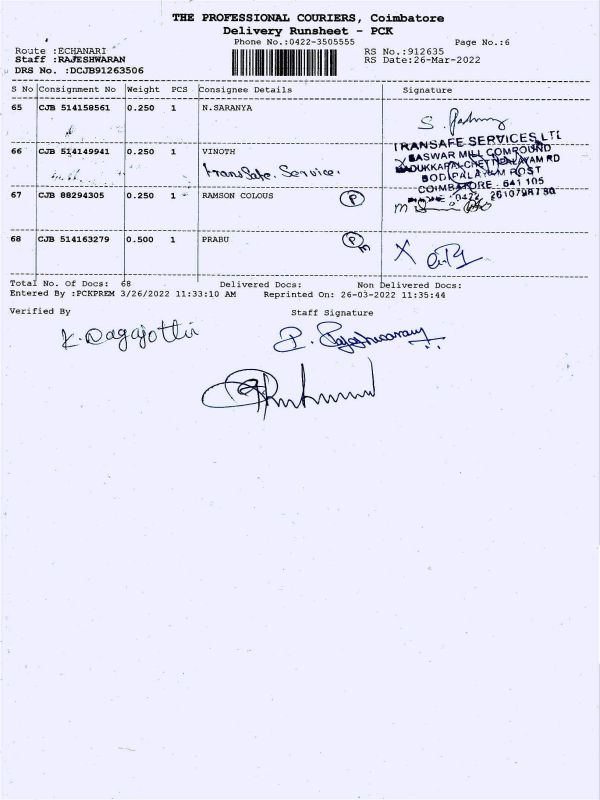 THE PROFESSIONAL COURIERS, Coimbatore
Delivery Runsheet - PCK
Phone No.:0422-3505555 Page No.:6
Route :ECHANARI RS No.:912635
Staff :RAJESHWARAN RS Date:26-Mar-2022
DRS No. :DCJB91263506
S No Consignment No Weight PCS Consignee Details Signature
65 CJB 514158561 0.250 1 N.SARANYA
TRANSAFE SERVICES LTD
66 CJB 514149941 0.250 1 VINOTH
BASWAR MILL COMPOUND
TranSafe. Service.
BODIPALAYAM POST
COIMBATORE - 641 105
67 CJB 88294305 0.250 1 RAMSON COLOUS P
68 CJB 514163279 0.500 1 PRABU P
Total No. Of Docs: 68 Delivered Docs: Non Delivered Docs:
Entered By :PCKPREM 3/26/2022 11:33:10 AM Reprinted On: 26-03-2022 11:35:44
Verified By Staff Signature